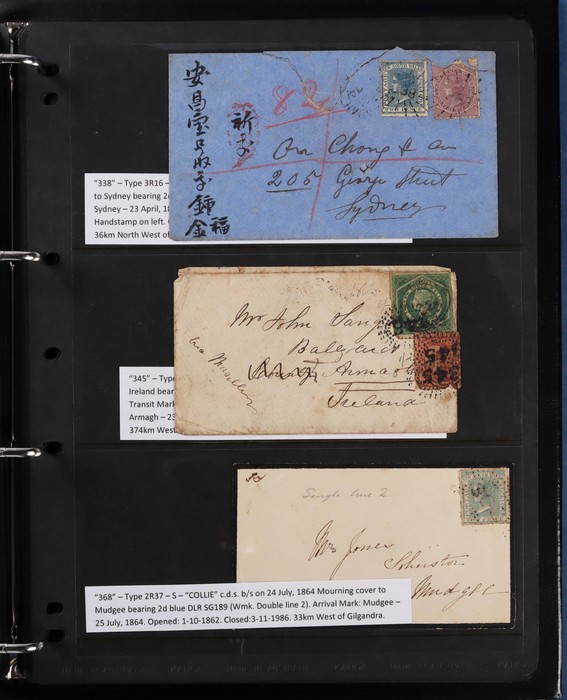 安昌宝号收玉
鍾
金福
祈玉
82
On Chong & Co
205 George Street
Sydney
"338" – Type 3R16 –
to Sydney bearing 2
Sydney – 23 April, 1
Handstamp on left.
36km North West of
Mr John
Ireland
via Marseilles
345
"345" – Type
Ireland bear
Transit Mark
Armagh – 23
374km West
Single line 2
Mrs Jones
Mudgee
"368" – Type 2R37 – S – "COLLIE" c.d.s. b/s on 24 July, 1864 Mourning cover to
Mudgee bearing 2d blue DLR SG189 (Wmk. Double line 2). Arrival Mark: Mudgee –
25 July, 1864. Opened: 1-10-1862. Closed:3-11-1986. 33km West of Gilgandra.